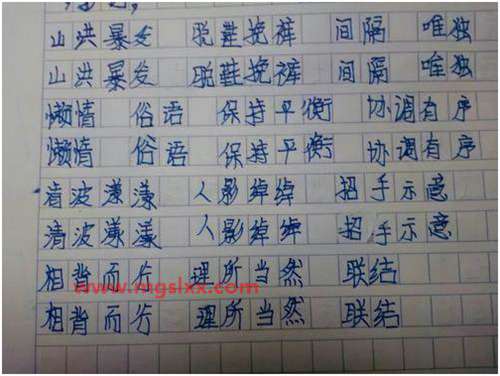 山洪暴发 脱鞋挽裤 间隔 唯独
山洪暴发 脱鞋挽裤 间隔 唯独
懒情 俗语 保持平衡 协调有序
懒情 俗语 保持平衡 协调有序
清波漾漾 人影绰绰 招手示意
清波漾漾 人影绰绰 招手示意
相背而行 理所当然 联结
www.mgslxx.com
相背而行 理所当然 联结